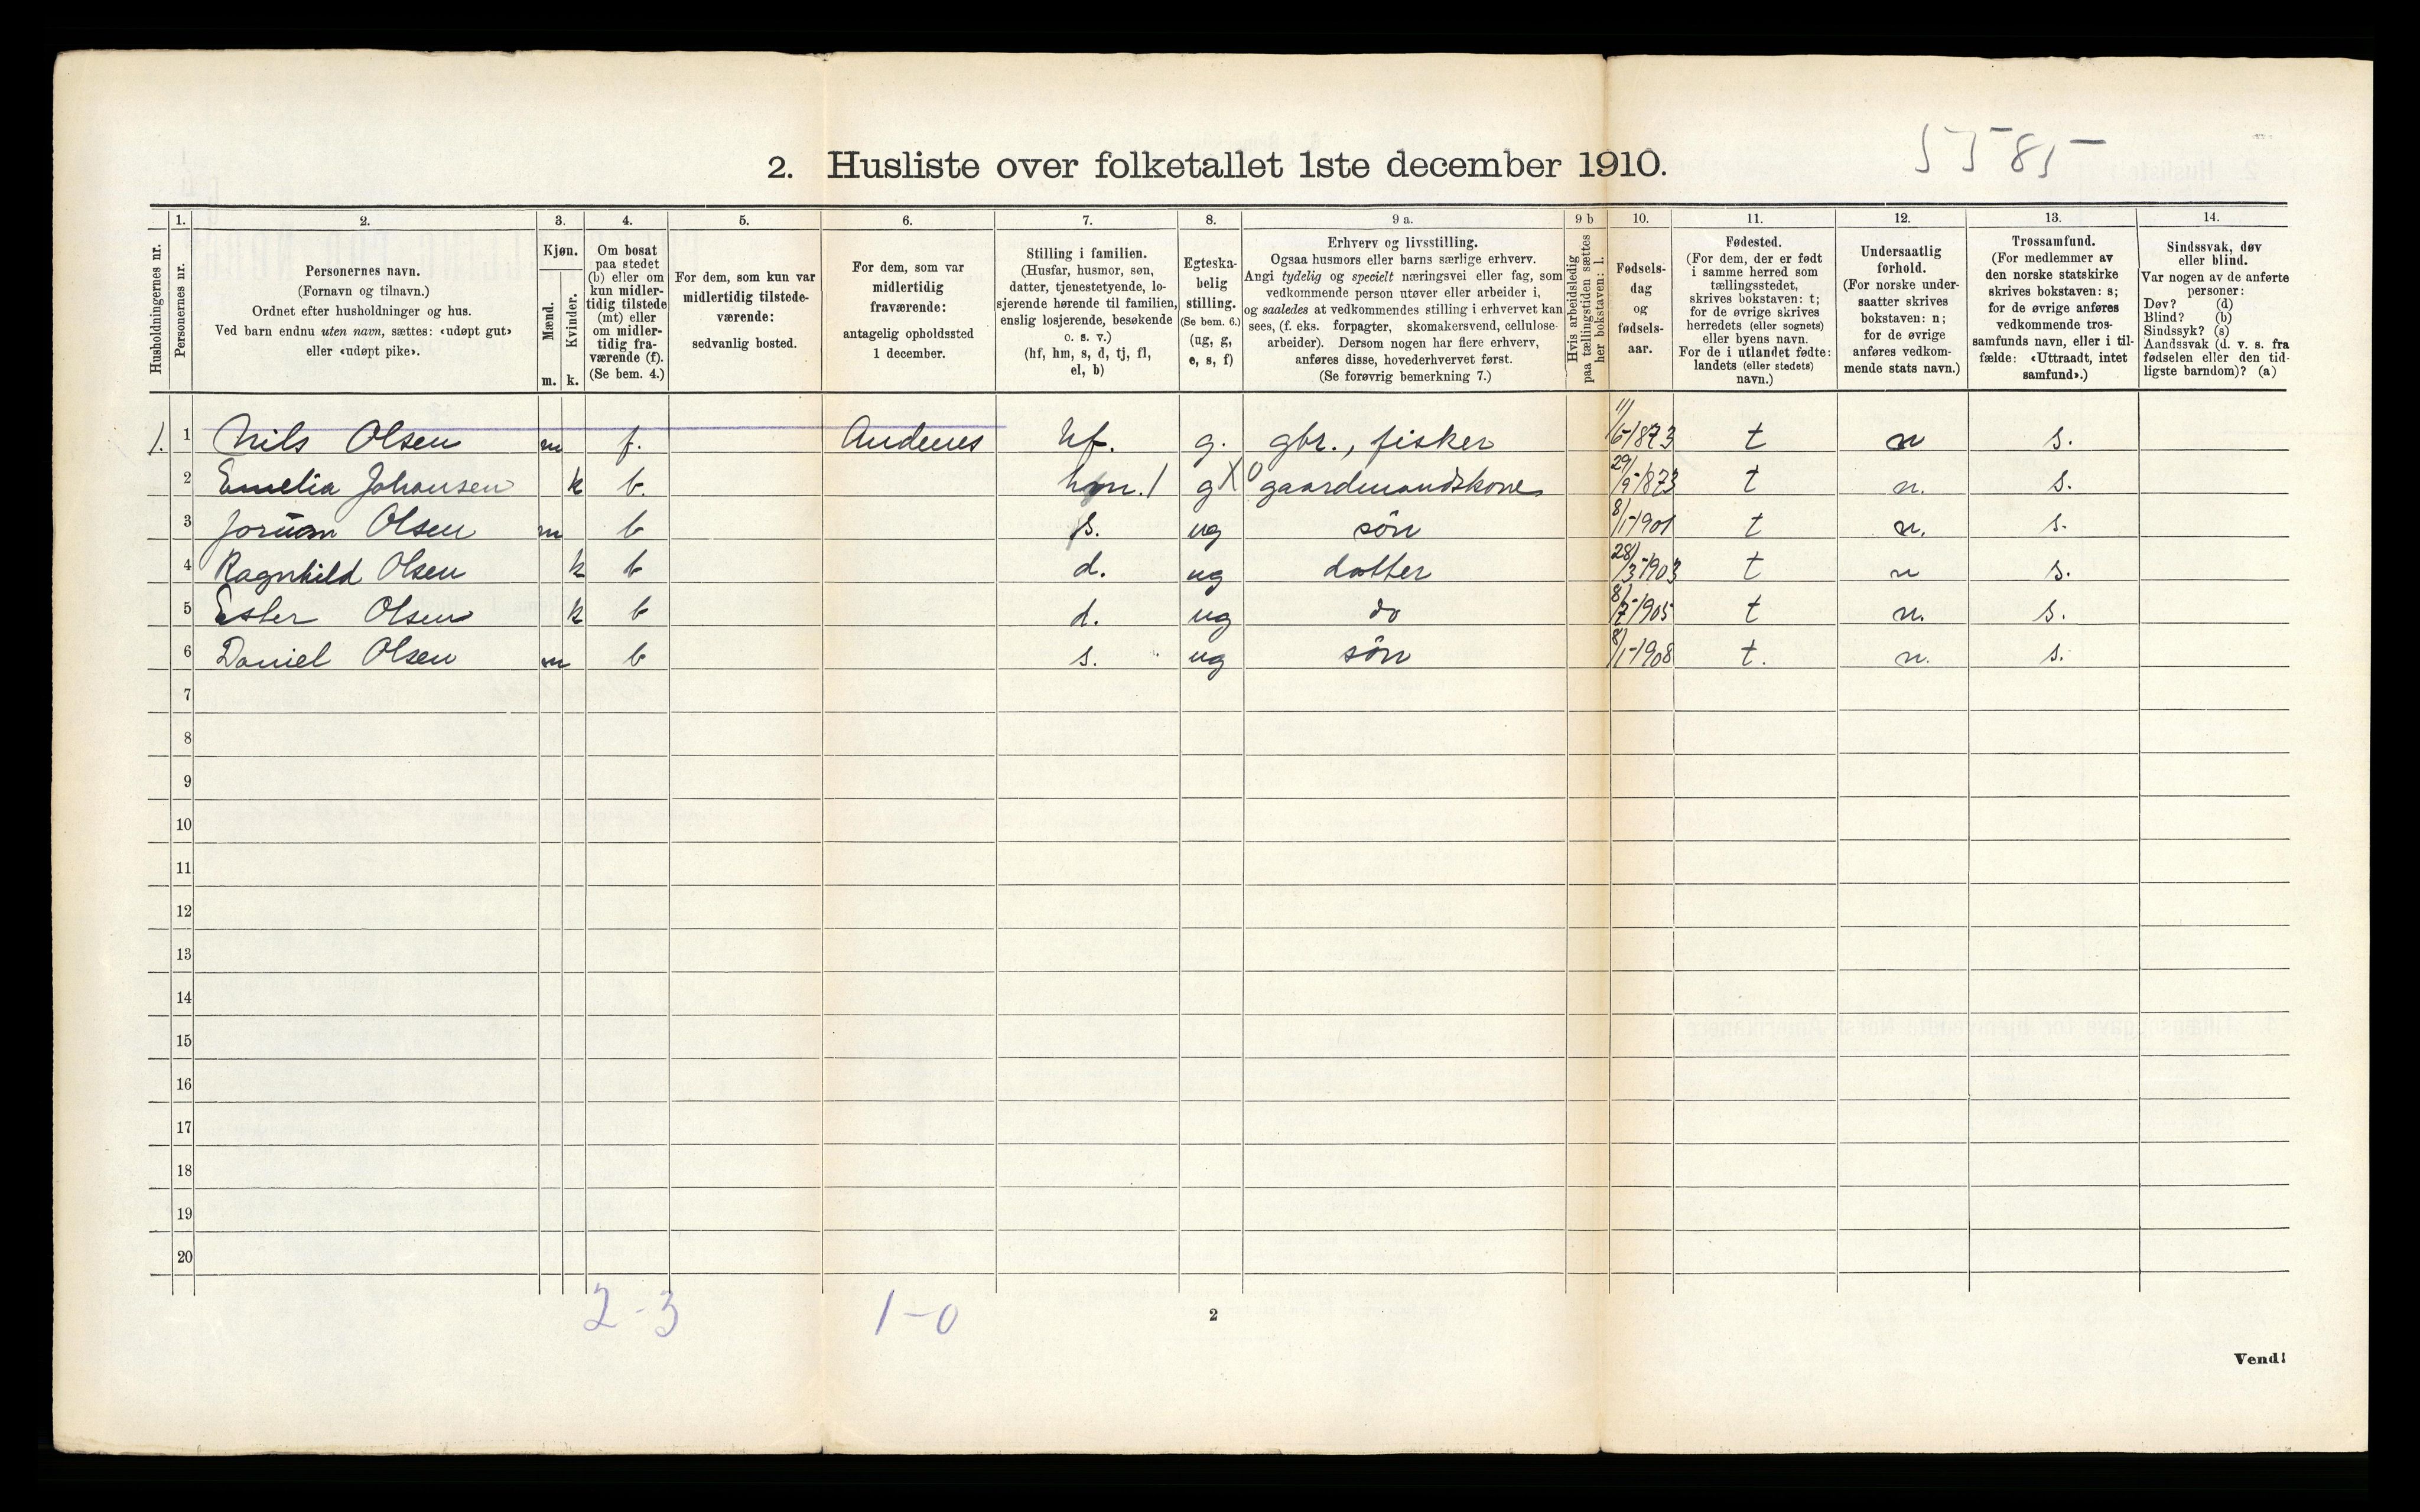 2. Husliste over folketallet 1ste december 1910.
1. 2. 3. 4. 5. 6. 7. 8. 9 a. 9 b 10. 11. 12. 13. 14.
Husholdningernes nr.
Personernes nr.
Personernes navn.
(Fornavn og tilnavn.)
Ordnet efter husholdninger og hus.
Ved barn endnu uten navn, sættes: «udøpt gut»
eller «udøpt pike».
Kjøn.
Mænd.
Kvinder.
m. k.
Om bosat
paa stedet
(b) eller om
kun midler-
tidig tilstede
(mt) eller
om midler-
tidig fra-
værende (f).
(Se bem. 4.)
For dem, som kun var
midlertidig tilstede-
værende:
sedvanlig bosted.
For dem, som var
midlertidig
fraværende:
antagelig opholdssted
1 december.
Stilling i familien.
(Husfar, husmor, søn,
datter, tjenestetyende, lo-
sjerende hørende til familien,
enslig losjerende, besøkende
o. s. v.)
(hf, hm, s, d, tj, fl,
el, b)
Egteska-
belig
stilling.
(Se bem. 6.)
(ug, g,
e, s, f)
Erhverv og livsstilling.
Ogsaa husmors eller barns særlige erhverv.
Angi tydelig og specielt næringsvei eller fag, som
vedkommende person utøver eller arbeider i,
og saaledes at vedkommendes stilling i erhvervet kan
sees, (f. eks. forpagter, skomakersvend, cellulose-
arbeider). Dersom nogen har flere erhverv,
anføres disse, hovederhvervet først.
(Se forøvrig bemerkning 7.)
Hvis arbeidsledig
paa tællingstiden sættes
her bokstaven: l.
Fødsels-
dag
og
fødsels-
aar.
Fødested.
(For dem, der er født
i samme herred som
tællingsstedet,
skrives bokstaven: t;
for de øvrige skrives
herredets (eller sognets)
eller byens navn.
For de i utlandet fødte:
landets (eller stedets)
navn.)
Undersaatlig
forhold.
(For norske under-
saatter skrives
bokstaven: n;
for de øvrige
anføres vedkom-
mende stats navn.)
Trossamfund.
(For medlemmer av
den norske statskirke
skrives bokstaven: s;
for de øvrige anføres
vedkommende tros-
samfunds navn, eller i til-
fælde: «Uttraadt, intet
samfund».)
Sindssvak, døv
eller blind.
Var nogen av de anførte
personer:
Døv? (d)
Blind? (b)
Sindssyk? (s)
Aandssvak (d. v. s. fra
fødselen eller den tid-
ligste barndom)? (a)
1. 1 Nils Olsen m f. Andenes hf. g. gbr., fisker 11/6-1873 t n s.
2 Emelia Johansen k b. hm. g gaardmandskone 29/9-1873 t n. s.
3 Olsen m b s. ug sön 8/1-1901 t n. s.
4 Ragnhild Olsen k b d. ug datter 28/3-1903 t n s.
5 Ester Olsen k b d. ug do 8/7-1905 t n. s.
6 Daniel Olsen m b s. ug sön 8/1-1908 t. n. s.
7
8
9
10
11
12
13
14
15
16
17
18
19
20
2-3 1-0
2
Vend!